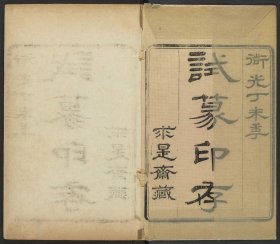 衜光丁未秊
試篆印存
求是齋藏